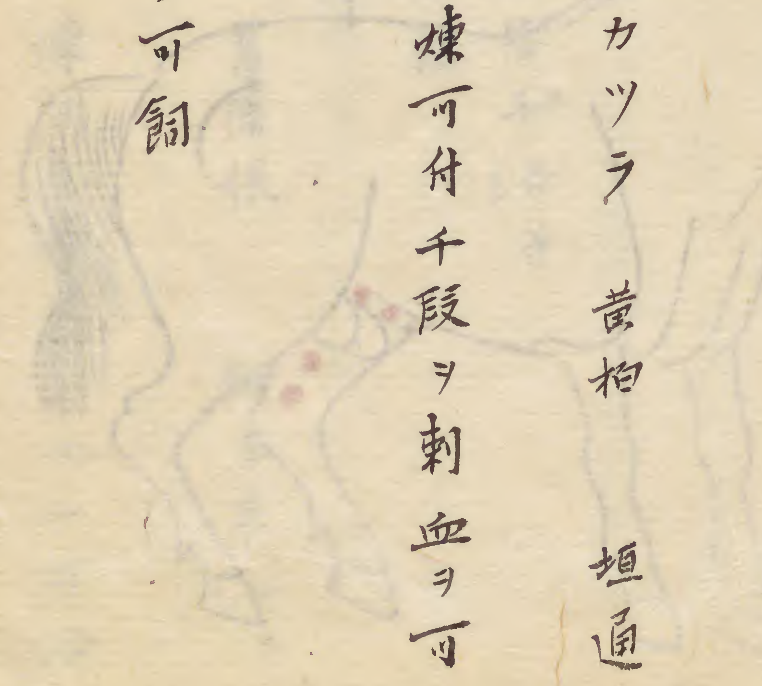 カツラ 黄柏 垣通
煉可付千段ヲ刺血ヲ可
可飼